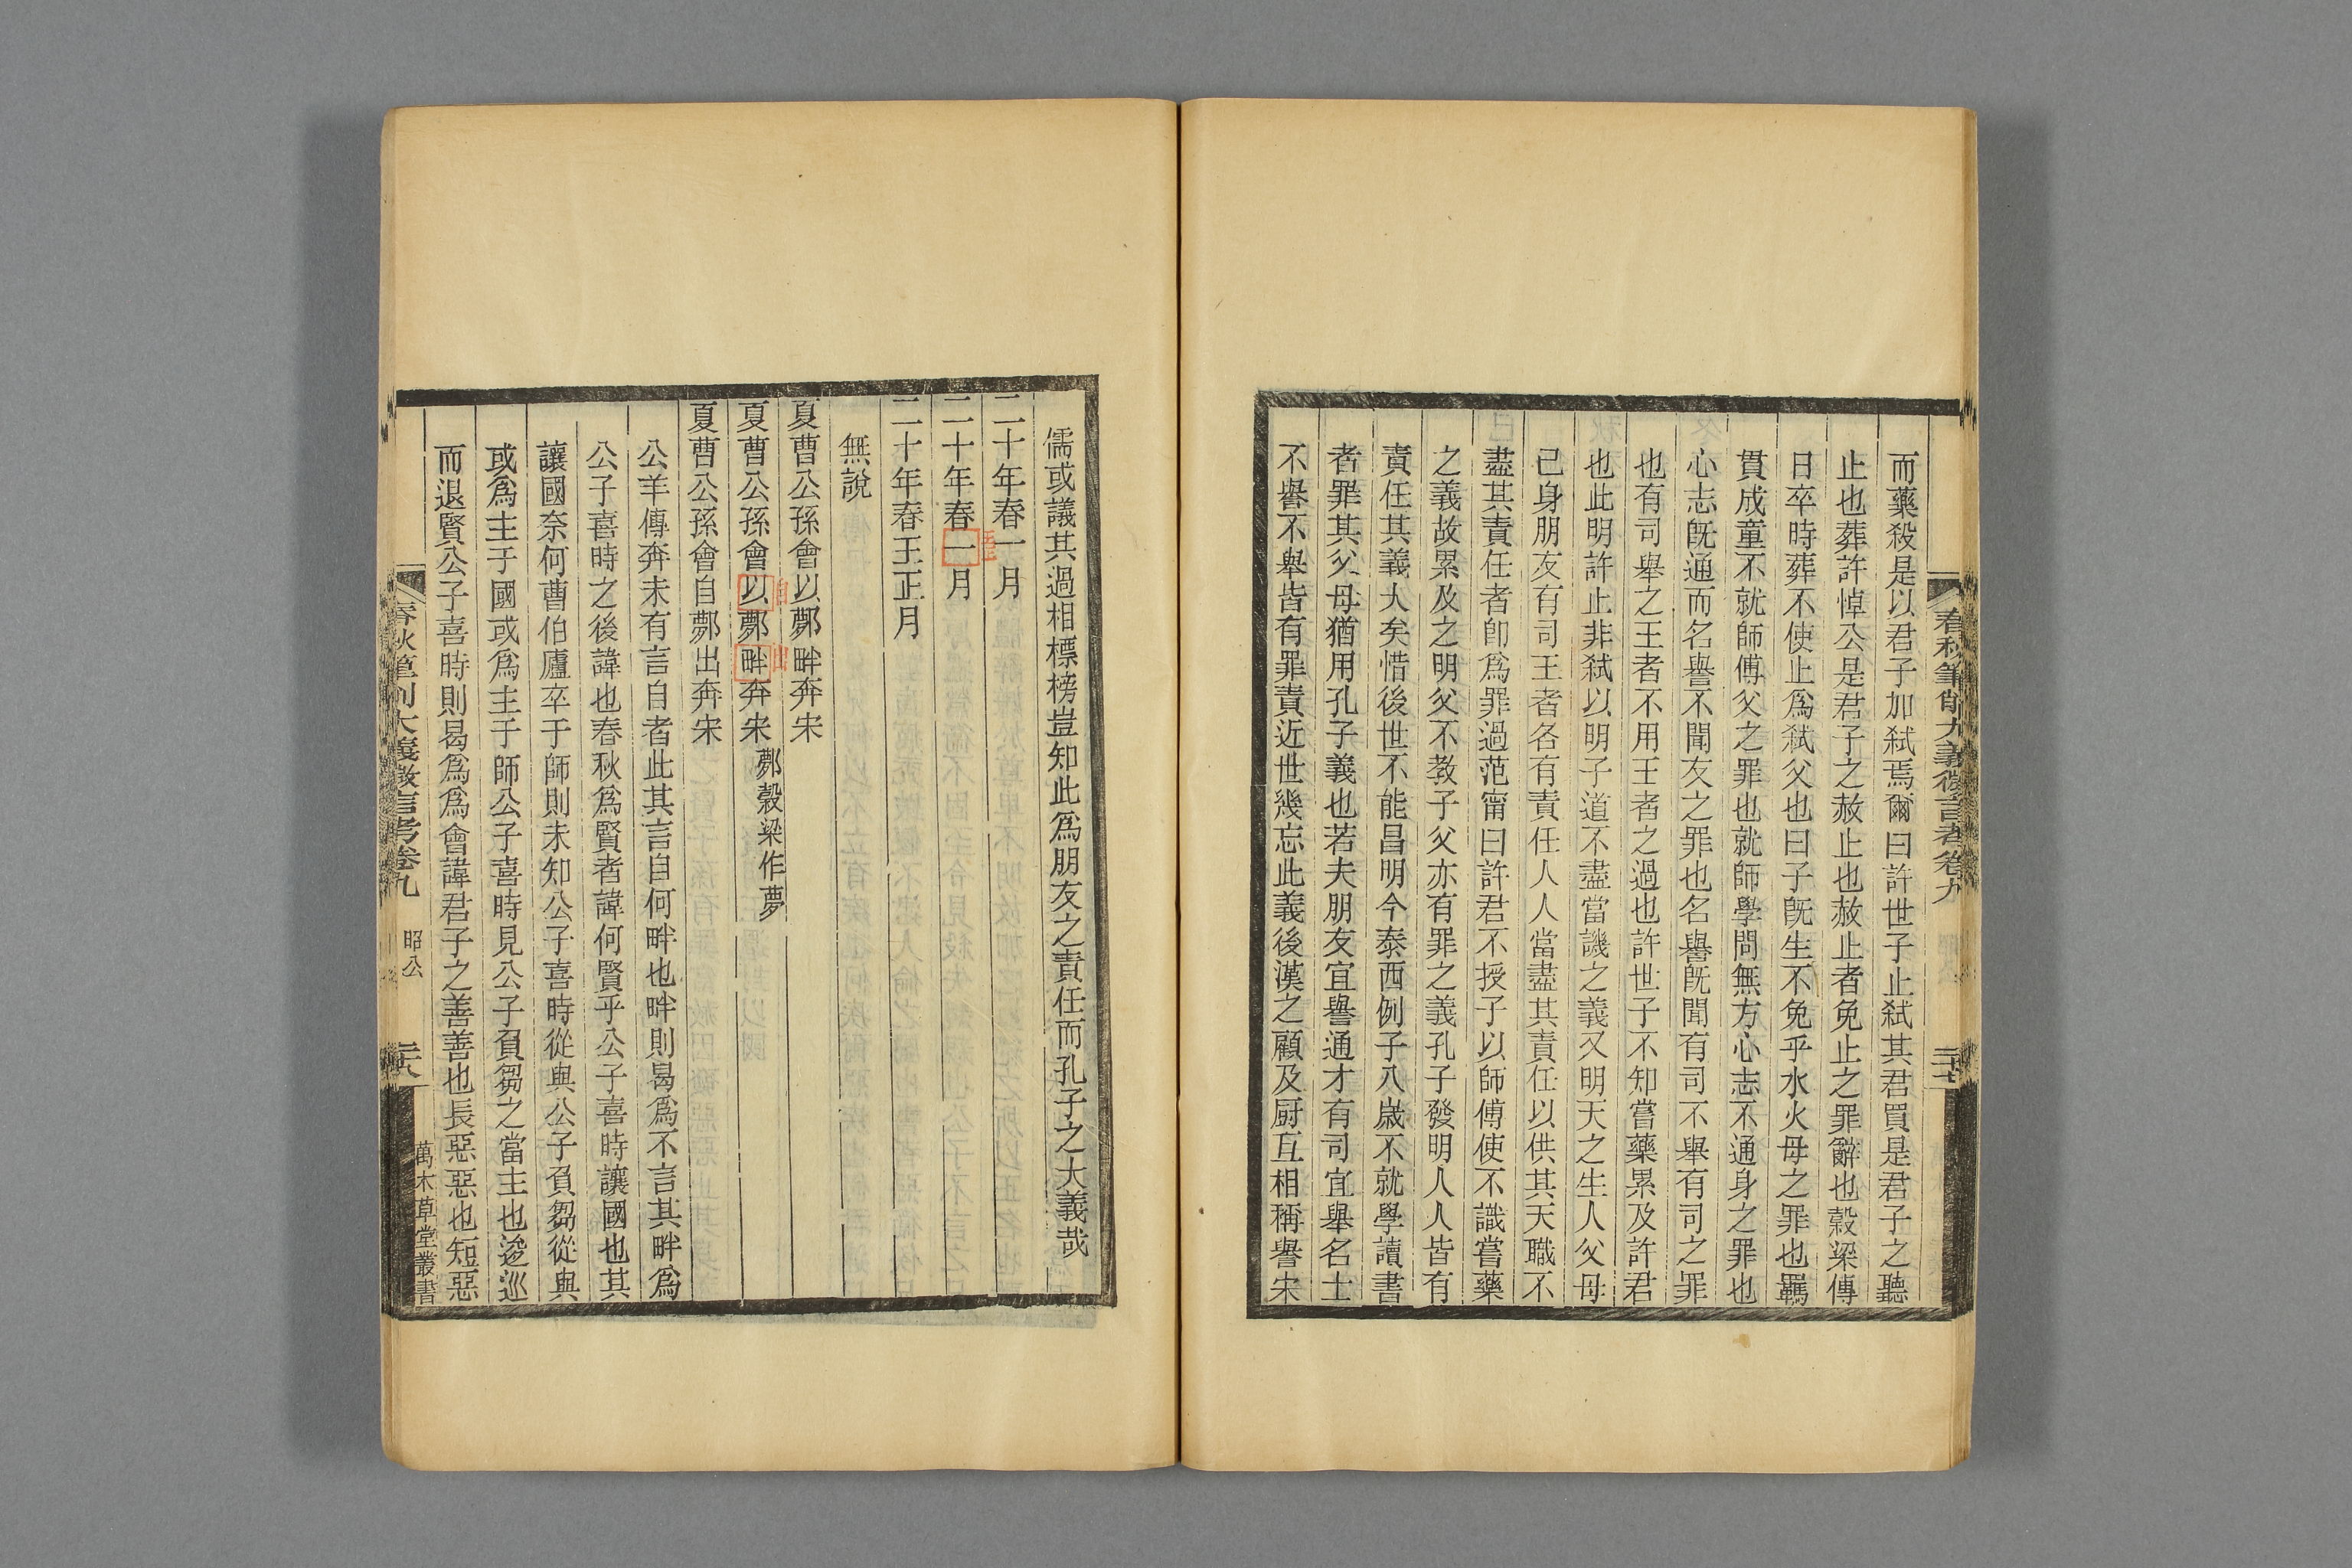 春秋筆削大義微言考卷九
二十七
而藥殺是以君子加弒焉爾曰許世子止弒其君買是君子之聽
止也葬許悼公是君子之赦止也赦止者免止之罪辭也穀梁傳
日卒時葬不使止爲弒父也曰子既生不免乎水火母之罪也羈
貫成童不就師傅父之罪也就師學問無方心志不通身之罪也
心志既通而名譽不聞友之罪也名譽既聞有司不舉有司之罪
也有司舉之王者不用王者之過也許世子不知嘗藥累及許君
也此明許止非弒以明子道不盡當譏之義又明天之生人父母
己身朋友有司王者各有責任人人當盡其責任以供其天職不
盡其責任者卽爲罪過范甯曰許君不授子以師傅使不識嘗藥
之義故累及之明父不教子父亦有罪之義孔子發明人人皆有
責任其義大矣惜後世不能昌明今泰西例子八歲不就學讀書
者罪其父母猶用孔子義也若夫朋友宜譽通才有司宜舉名士
不譽不舉皆有罪責近世幾忘此義後漢之顧及厨互相稱譽宋
儒或議其過相標榜豈知此爲朋友之責任而孔子之大義哉
二十年春一月
二十年春一月
王
二十年春王正月
無說
夏曹公孫會以鄸畔奔宋
夏曹公孫會以鄸畔奔宋 鄸穀梁作夢
自 出
夏曹公孫會自鄸出奔宋
公羊傳奔未有言自者此其言自何畔也畔則曷爲不言其畔爲
公子喜時之後諱也春秋爲賢者諱何賢乎公子喜時讓國也其
讓國奈何曹伯廬卒于師則未知公子喜時從與公子負芻從與
或爲主于國或爲主于師公子喜時見公子負芻之當主也逡巡
而退賢公子喜時則曷爲爲會諱君子之善善也長惡惡也短惡
春秋筆削大義微言考卷九
昭公
二十八
萬木草堂叢書